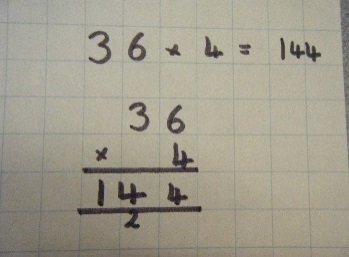 36 × 4 = 144
36
× 4
144
2